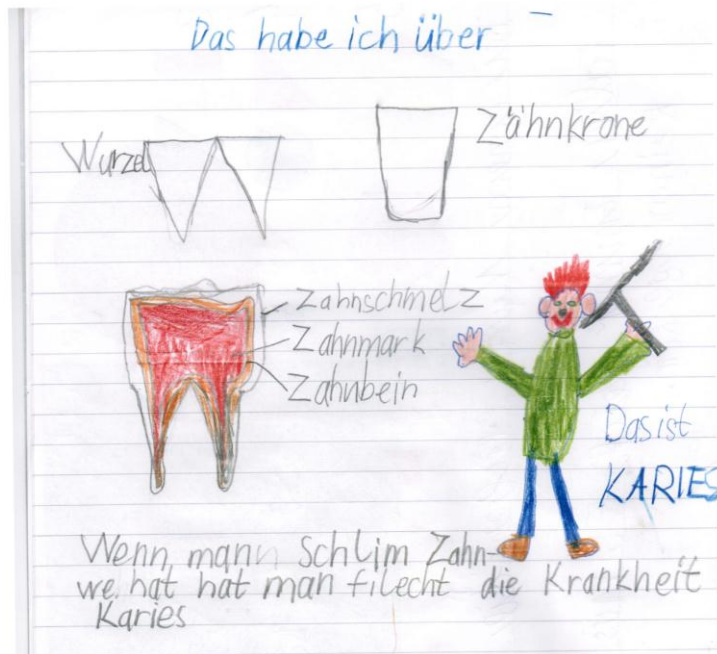 Das habe ich über
Wurzel
Zähnkrone
Zahnschmelz
Zahnmark
Zahnbein
Das ist
KARIES
Wenn mann Schlim Zahn-
we hat hat man filecht die Krankheit
Karies